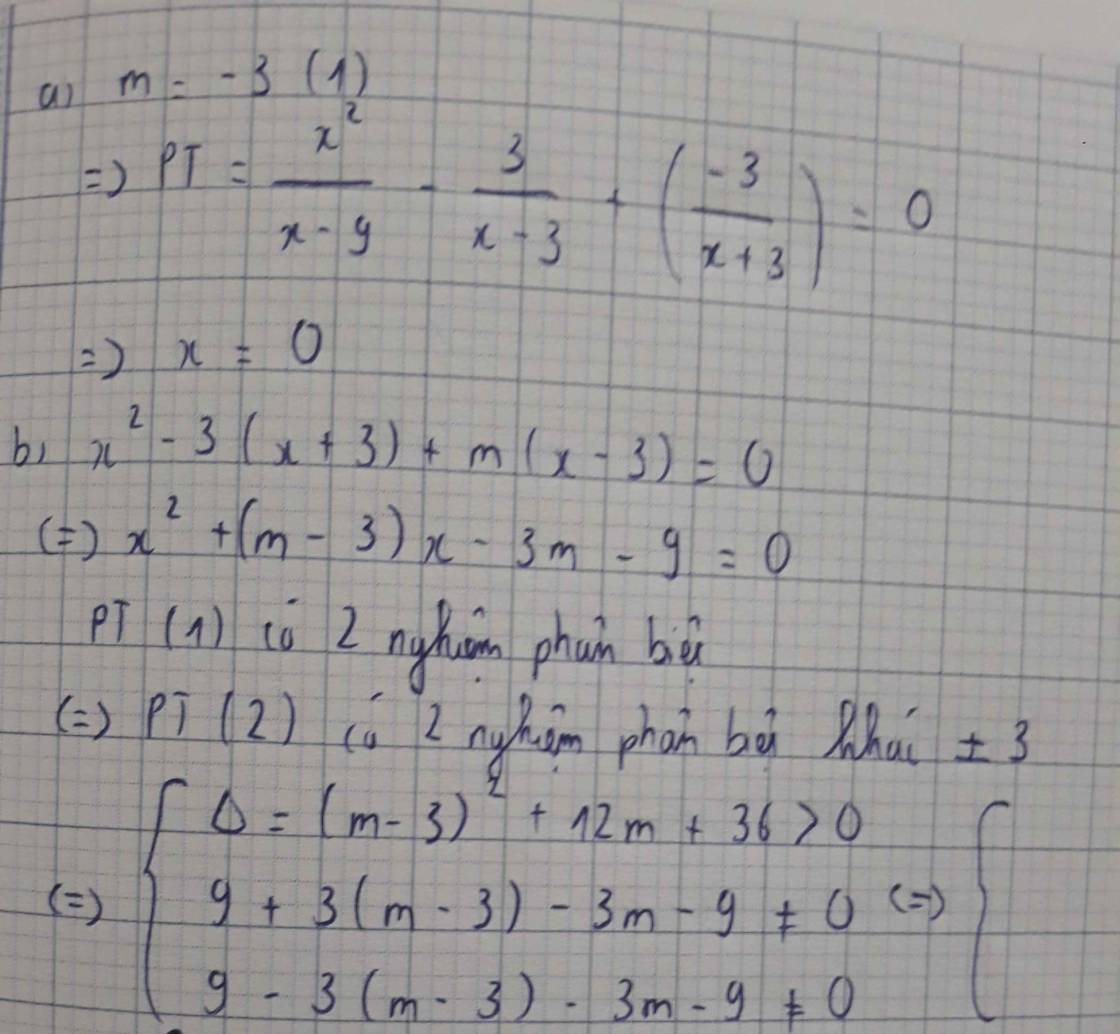 a) m = -3 (1)
=> PT = x²/(x - 9) - 3/(x - 3) + (-3/(x + 3)) = 0
=> x = 0
b) x² - 3(x + 3) + m(x - 3) = 0
(=) x² + (m - 3)x - 3m - 9 = 0
PT (1) có 2 nghiệm phân biệt
(=) PT (2) có 2 nghiệm phân biệt khác ± 3
(=) { Δ = (m - 3)² + 12m + 36 > 0
9 + 3(m - 3) - 3m - 9 ≠ 0 (=) {
9 - 3(m - 3) - 3m - 9 ≠ 0